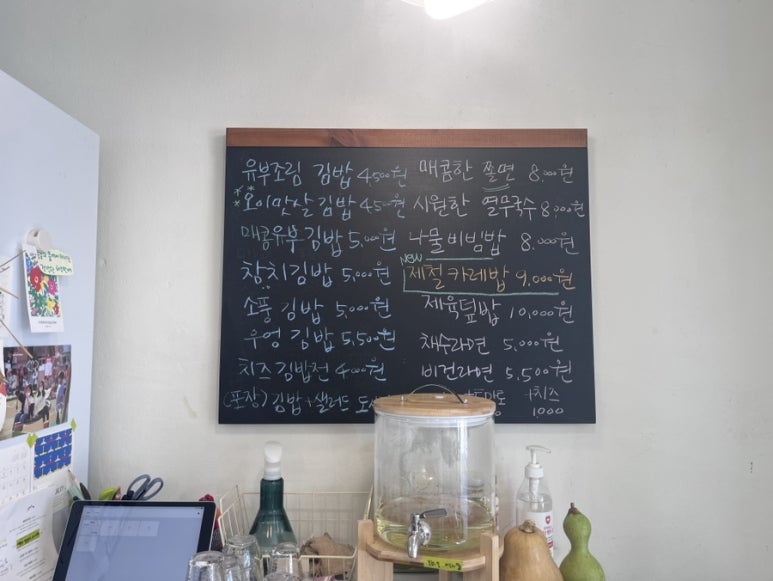 유부조림 김밥 4,500원
오이맛살 김밥 4,500원
매콤유부김밥 5,000원
참치김밥 5,000원
소풍 김밥 5,000원
우엉 김밥 5,500원
치즈김밥전 4000원
(포장) 김밥+샐러드 도
매콤한 쫄면 8,000원
시원한 열무국수 8,000원
나물비빔밥 8,000원
NEW
제철카레밥 9,000원
제육덮밥 10,000원
채수라면 5,000원
비건라면 5,500원
+치즈
1000